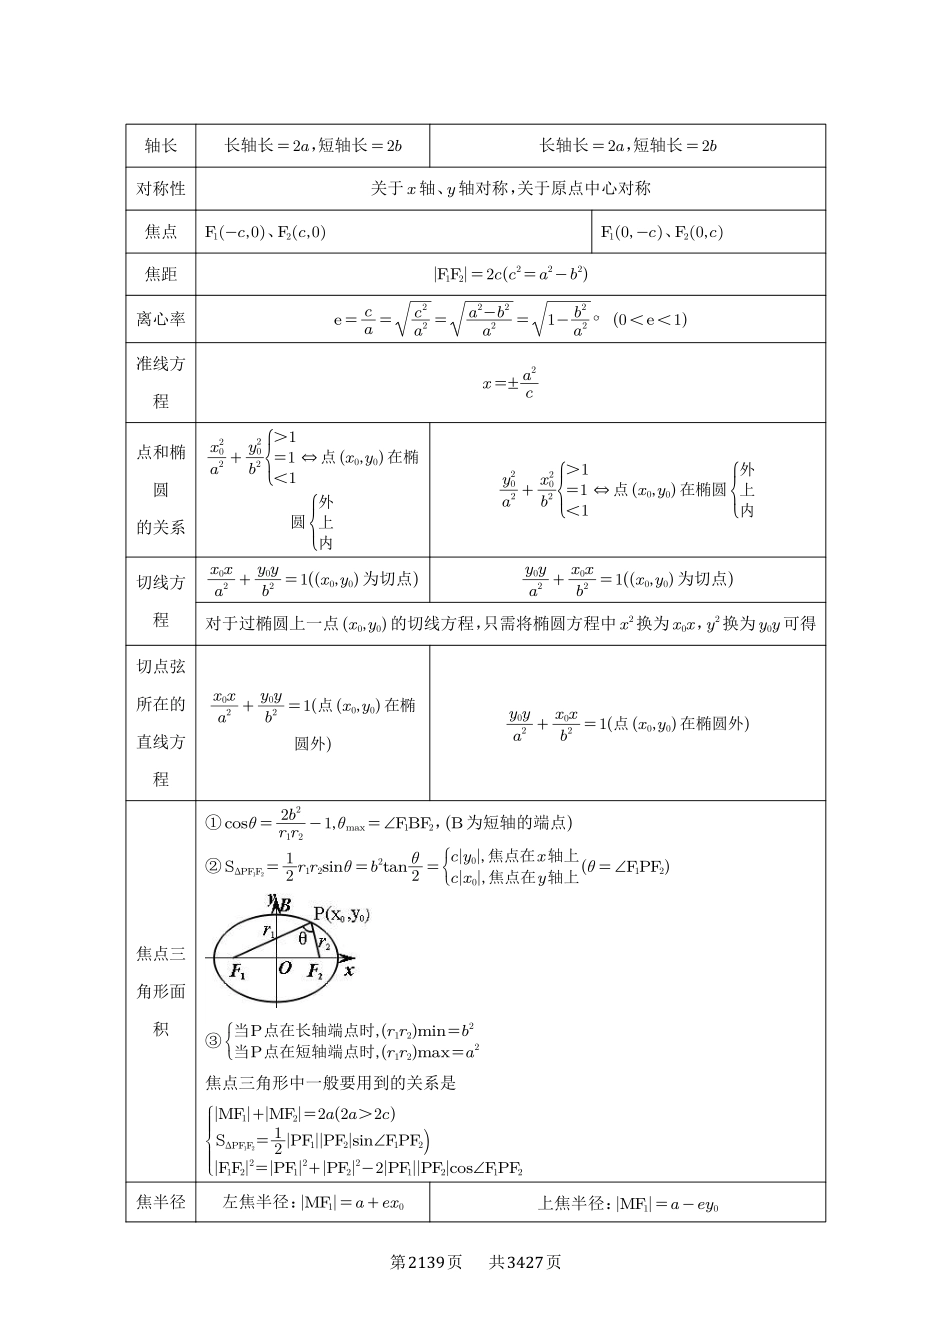 轴长 长轴长=2a,短轴长=2b 长轴长=2a,短轴长=2b
对称性 关于 x 轴、y 轴对称,关于原点中心对称
焦点 F₁(−c,0)、F₂(c,0) F₁(0,−c)、F₂(0,c)
焦距 |F₁F₂|=2c(c²=a²−b²)
离心率 e=c/a=√(c²/a²)=√((a²−b²)/a²)=√(1−b²/a²)。(0<e<1)
准线方
程
x=±a²/c
点和椭
圆
的关系
x₀²/a²+y₀²/b² {>1 =1 <1 ⇔点(x₀,y₀)在椭
圆{外 上 内
y₀²/a²+x₀²/b² {>1 =1 <1 ⇔点(x₀,y₀)在椭圆{外 上 内
切线方
程
x₀x/a²+y₀y/b²=1((x₀,y₀)为切点) y₀y/a²+x₀x/b²=1((x₀,y₀)为切点)
对于过椭圆上一点(x₀,y₀)的切线方程,只需将椭圆方程中x²换为x₀x,y²换为y₀y可得
切点弦
所在的
直线方
程
x₀x/a²+y₀y/b²=1(点(x₀,y₀)在椭
圆外)
y₀y/a²+x₀x/b²=1(点(x₀,y₀)在椭圆外)
焦点三
角形面
积
①cosθ=2b²/(r₁r₂)−1,θmax=∠F₁BF₂,(B为短轴的端点)
②S△PF₁F₂=1/2 r₁r₂sinθ=b²tan θ/2={c|y₀|,焦点在x轴上 c|x₀|,焦点在y轴上 (θ=∠F₁PF₂)
y B
P(x₀,y₀)
r₁ θ r₂
F₁ O F₂ x
③{当P点在长轴端点时,(r₁r₂)min=b²
当P点在短轴端点时,(r₁r₂)max=a²
焦点三角形中一般要用到的关系是
{|MF₁|+|MF₂|=2a(2a>2c)
S△PF₁F₂=1/2|PF₁||PF₂|sin∠F₁PF₂)
|F₁F₂|²=|PF₁|²+|PF₂|²−2|PF₁||PF₂|cos∠F₁PF₂
焦半径 左焦半径:|MF₁|=a+ex₀ 上焦半径:|MF₁|=a−ey₀
第2139页 共3427页